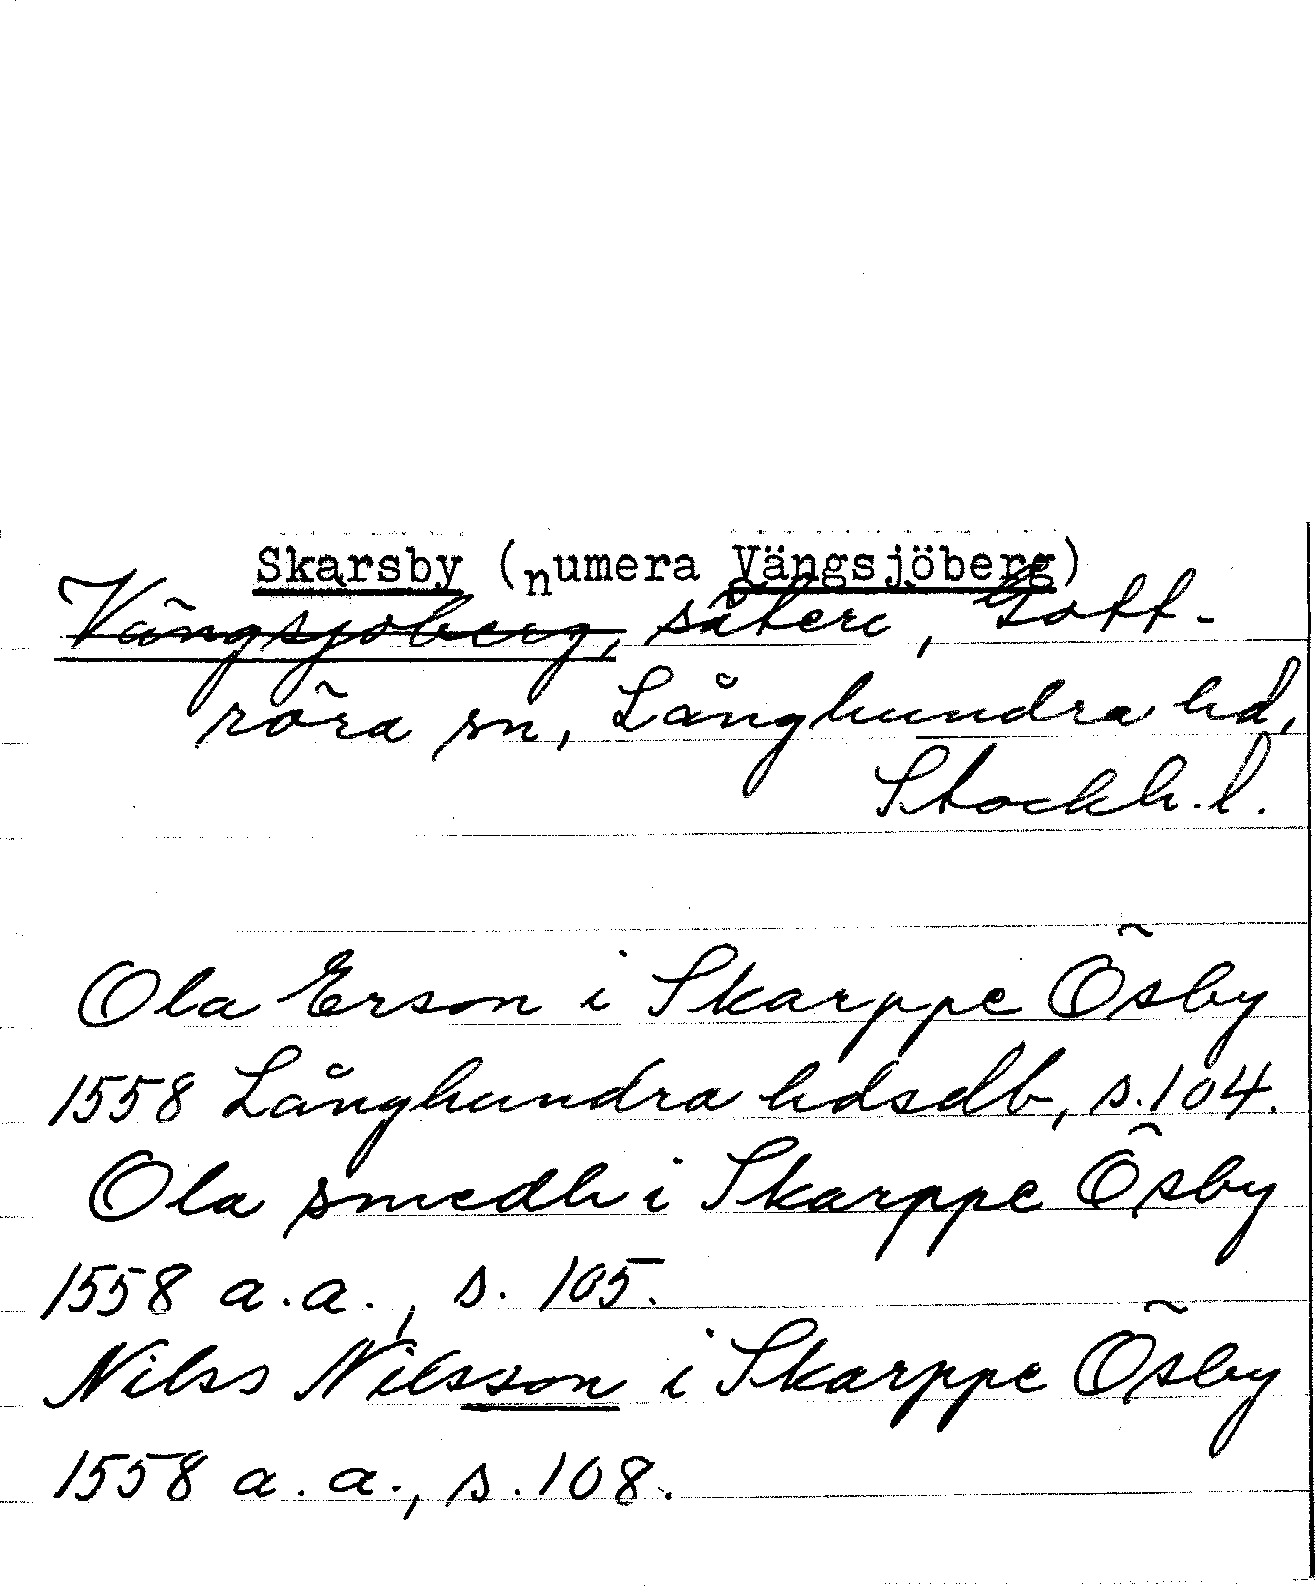 Skarsby (numera Vängsjöberg)
Vängsjöberg, säteri, Gott-
röra sn, Långhundra hd,
Stockh. l.
Ola Erson i Skarppe Ösby
1558 Långhundra hdsdb, s. 104.
Ola smedh i Skarppe Ösby
1558 a.a., s. 105.
Nilss Nilsson i Skarppe Ösby
1558 a.a., s. 108.